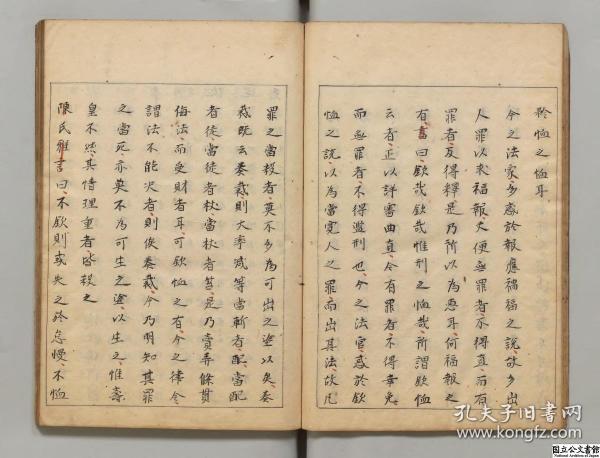 矜恤之恤耳
今之法家多惑於報應禍福之說故多出
人罪以求福報夫使無罪者不得直而有
罪者反得釋是乃所以為惡耳何福報之
有書曰欽哉欽哉惟刑之恤哉所謂欽恤
云者正以詳審曲直令有罪者不得幸免
而無罪者不得濫刑也今之法官惑於欽
恤之說以為當寬人之罪而出其法故凡
罪之當殺者莫不多為可出之塗以矣奏
裁既云奏裁則大率減等當斬者配當配
者徒當徒者杖當杖者笞是乃賣弄條貫
侮法而受財者耳何欽恤之有今之律令
謂法不能決者則俟奏裁今乃明知其罪
之當死亦莫不為可生之塗以生之惟壽
皇不然其情理重者皆殺之
陳氏雅言曰不欽則或失之於怠慢不恤
孔夫子旧书网
www.kongfz.com
国立公文書館
National Archives of Japan